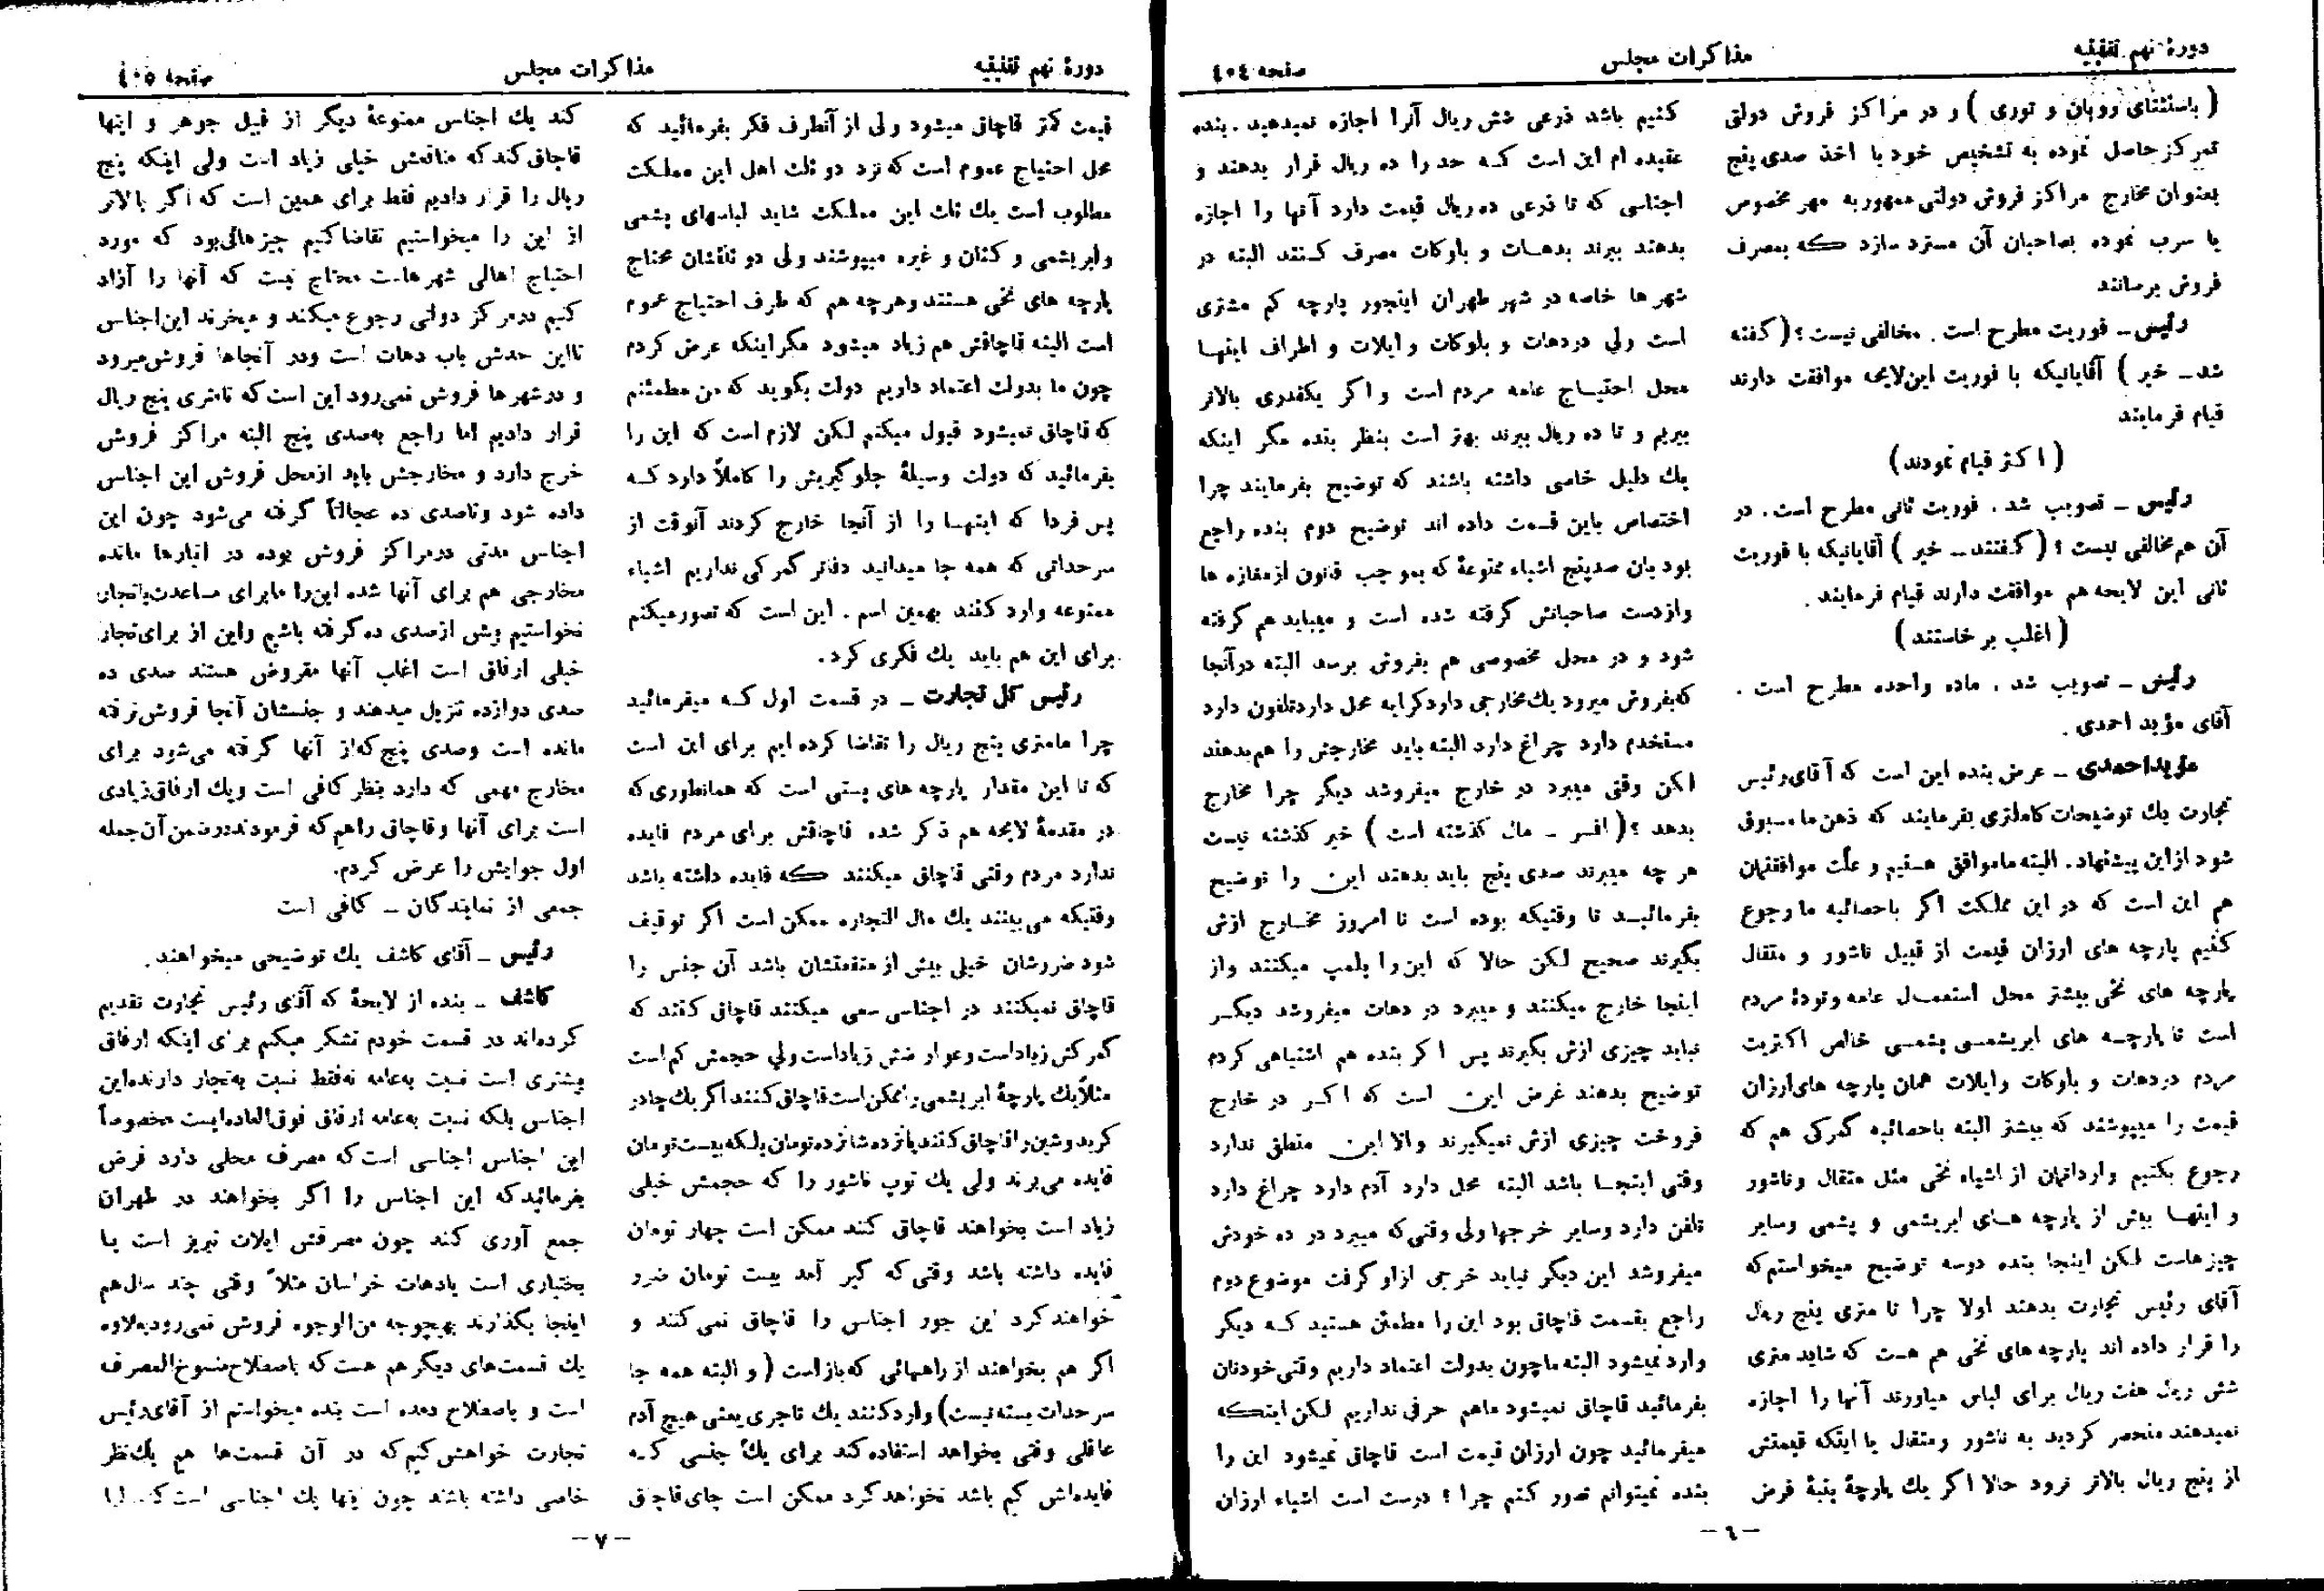 دورهٔ نهم تقنینیه
مذاکرات مجلس
صفحه ٤٠٤
( باستثنای روبان و توری ) و در مراکز فروش دولتی
تمرکز حاصل نموده به تشخیص خود با اخذ صدی پنج
بعنوان مخارج مراکز فروش دولتی ممهور به مهر مخصوص
یا سرب نموده بصاحبان آن مسترد سازد که بمصرف
فروش برسانند
رئیس ـ فوریت مطرح است . مخالفی نیست ؟ ( گفته
شد ـ خیر ) آقایانیکه با فوریت این لایحه موافقت دارند
قیام فرمایند
( اکثر قیام نمودند )
رئیس ـ تصویب شد . فوریت ثانی مطرح است . در
آن هم مخالفی نیست ؟ ( گفتند ـ خیر ) آقایانیکه با فوریت
ثانی این لایحه هم موافقت دارند قیام فرمایند .
( اغلب برخاستند )
رئیس ـ تصویب شد . ماده واحده مطرح است .
آقای مؤید احمدی .
مؤید احمدی ـ عرض بنده این است که آقای رئیس
تجارت یك توضیحات کاملتری بفرمایند که ذهن ما مسبوق
شود از این پیشنهاد . البته ما موافق هستیم و علّت موافقتمان
هم این است که در این مملکت اگر باحصائیه ما رجوع
کنیم پارچه های ارزان قیمت از قبیل ناشور و متقال
پارچه های نخی بیشتر محل استعمال عامه و تودهٔ مردم
است تا پارچه های ابریشمی پشمی خالص اکثریت
مردم در دهات و بلوکات و ایلات همان پارچه های ارزان
قیمت را میپوشند که بیشتر البته باحصائیه گمرکی هم که
رجوع بکنیم وارداتمان از اشیاء نخی مثل متقال و ناشور
و اینها بیش از پارچه های ابریشمی و پشمی و سایر
چیزهاست لکن اینجا بنده دوسه توضیح میخواستم که
آقای رئیس تجارت بدهند اولا چرا تا متری پنج ریال
را قرار داده اند پارچه های نخی هم هست که شاید متری
شش ریال هفت ریال برای لباس میاورند آنها را اجازه
نمیدهند منحصر کردید به ناشور و متقال یا اینکه قیمتش
از پنج ریال بالاتر نرود حالا اگر یك پارچهٔ پنبهٔ فرض
کنیم باشد ذرعی شش ریال آنرا اجازه نمیدهید . بنده
عقیده ام این است که حد را ده ریال قرار بدهند و
اجناسی که تا ذرعی ده ریال قیمت دارد آنها را اجازه
بدهند ببرند بدهات و بلوکات مصرف کنند البته در
شهر ها خاصه در شهر طهران اینجور پارچه کم مشتری
است ولی در دهات و بلوکات و ایلات و اطراف اینها
محل احتیاج عامه مردم است و اگر یکقدری بالاتر
ببریم و تا ده ریال ببرند بهتر است بنظر بنده مگر اینکه
یك دلیل خاصی داشته باشند که توضیح بفرمایند چرا
اختصاص باین قسمت داده اند توضیح دوم بنده راجع
بود بان صدپنج اشیاء ممنوعهٔ که بموجب قانون از مغازه ها
و از دست صاحبانش گرفته شده است و میباید هم گرفته
شود و در محل مخصوصی هم بفروش برسد البته در آنجا
که بفروش میرود یك مخارجی دارد کرایه محل دارد تلفون دارد
مستخدم دارد چراغ دارد البته باید مخارجش را هم بدهند
لکن وقتی میبرد در خارج میفروشد دیگر چرا مخارج
بدهد ؟ ( افسر ـ مال گذشته است ) خیر گذشته نیست
هر چه میبرند صدی پنج باید بدهند این را توضیح
بفرمائید تا وقتیکه بوده است تا امروز مخارج ازش
بگیرند صحیح لکن حالا که این را پلمپ میکنند و از
اینجا خارج میکنند و میبرد در دهات میفروشد دیگر
نباید چیزی ازش بگیرند پس اگر بنده هم اشتباهی کردم
توضیح بدهند غرض این است که اگر در خارج
فروخت چیزی ازش نمیگیرند والا این منطق ندارد
وقتی اینجا باشد البته محل دارد آدم دارد چراغ دارد
تلفن دارد و سایر خرجها ولی وقتی که میبرد در ده خودش
میفروشد این دیگر نباید خرجی از او گرفت موضوع دوم
راجع بقسمت قاچاق بود این را مطمئن هستید که دیگر
وارد نمیشود البته ما چون بدولت اعتماد داریم وقتی خودتان
بفرمائید قاچاق نمیشود ماهم حرفی نداریم لکن اینکه
میفرمائید چون ارزان قیمت است قاچاق نمیشود این را
بنده نمیتوانم تصور کنم چرا ؟ درست است اشیاء ارزان
ـ ٦ ـ
دورهٔ نهم تقنینیه
مذاکرات مجلس
صفحه ٤٠٥
قیمت کمتر قاچاق میشود ولی از آنطرف فکر بفرمائید که
محل احتیاج عموم است که نزد دو ثلث اهل این مملکت
مطلوب است یك ثلث این مملکت شاید لباسهای پشمی
و ابریشمی و کتان و غیره میپوشند ولی دو ثلثشان محتاج
پارچه های نخی هستند و هرچه هم که طرف احتیاج عموم
است البته قاچاقش هم زیاد میشود مگر اینکه عرض کردم
چون ما بدولت اعتماد داریم دولت بگوید که من مطمئنم
که قاچاق نمیشود قبول میکنم لکن لازم است که این را
بفرمائید که دولت وسیلهٔ جلوگیریش را کاملاً دارد که
پس فردا که اینها را از آنجا خارج کردند آنوقت از
سرحداتی که همه جا میدانید دفاتر گمرکی نداریم اشیاء
ممنوعه وارد کنند بهمین اسم . این است که تصور میکنم
برای این هم باید یك فکری کرد .
رئیس کل تجارت ـ در قسمت اول که میفرمائید
چرا ما متری پنج ریال را تقاضا کرده ایم برای این است
که تا این مقدار پارچه های پستی است که همانطوری که
در مقدمهٔ لایحه هم ذکر شده قاچاقش برای مردم فایده
ندارد مردم وقتی قاچاق میکنند که فایده داشته باشد
وقتیکه می بینند یك مال التجاره ممکن است اگر توقیف
شود ضررشان خیلی بیش از منفعتشان باشد آن جنس را
قاچاق نمیکنند در اجناسی سعی میکنند قاچاق کنند که
گمرکش زیاد است و عوارضش زیاد است ولی حجمش کم است
مثلاً یك پارچهٔ ابریشمی را ممکن است قاچاق کنند اگر یك چادر
کربدوشین را قاچاق کنند پانزده شانزده تومان بلکه بیست تومان
فایده می برند ولی یك توپ ناشور را که حجمش خیلی
زیاد است بخواهند قاچاق کنند ممکن است چهار تومان
فایده داشته باشد وقتی که گیر آمد بیست تومان ضرر
خواهند کرد این جور اجناس را قاچاق نمی کنند و
اگر هم بخواهند از راههائی که باز است ( و البته همه جا
سرحدات بسته نیست ) وارد کنند یك تاجری یعنی هیچ آدم
عاقلی وقتی بخواهد استفاده کند برای یك جنسی که
فایده اش کم باشد نخواهد کرد ممکن است چای قاچاق
کند یك اجناس ممنوعهٔ دیگر از قبیل جوهر و اینها
قاچاق کند که منافعش خیلی زیاد است ولی اینکه پنج
ریال را قرار دادیم فقط برای همین است که اگر بالاتر
از این را میخواستیم تقاضا کنیم چیزهائی بود که مورد
احتیاج اهالی شهرهاست محتاج نیست که آنها را آزاد
کنیم در مرکز دولتی رجوع میکند و میخرند این اجناس
تا این حدش باب دهات است و در آنجاها فروش میرود
و در شهرها فروش نمی رود این است که تا متری پنج ریال
قرار دادیم اما راجع به صدی پنج البته مراکز فروش
خرج دارد و مخارجش باید از محل فروش این اجناس
داده شود و تا صدی ده عجالتاً گرفته می شود چون این
اجناس مدتی در مراکز فروش بوده در انبارها مانده
مخارجی هم برای آنها شده این را ما برای مساعدت با تجار
نخواستیم بیش از صدی ده گرفته باشیم و این از برای تجار
خیلی ارفاق است اغلب آنها مقروض هستند صدی ده
صدی دوازده تنزیل میدهند و جنسشان آنجا فروش نرفته
مانده است و صدی پنج که از آنها گرفته می شود برای
مخارج مهمی که دارد بنظر کافی است و یك ارفاق زیادی
است برای آنها و قاچاق را هم که فرمودند در ضمن آن جمله
اول جوابش را عرض کردم .
جمعی از نمایندگان ـ کافی است
رئیس ـ آقای کاشف یك توضیحی میخواهند .
کاشف ـ بنده از لایحهٔ که آقای رئیس تجارت تقدیم
کرده اند در قسمت خودم تشکر میکنم برای اینکه ارفاق
بیشتری است نسبت به عامه نه فقط نسبت به تجار دارنده این
اجناس بلکه نسبت به عامه ارفاق فوق العاده ایست مخصوصاً
این اجناس اجناسی است که مصرف محلی دارد فرض
بفرمائید که این اجناس را اگر بخواهند در طهران
جمع آوری کنند چون مصرفش ایلات تبریز است یا
بختیاری است یا دهات خراسان مثلاً وقتی چند سال هم
اینجا بگذارند بهیچوجه من الوجوه فروش نمی رود بعلاوه
یك قسمت های دیگر هم هست که باصطلاح منسوخ المصرف
است و باصطلاح دمده است بنده میخواستم از آقای رئیس
تجارت خواهش کنم که در آن قسمت ها هم یك نظر
خاصی داشته باشند چون اینها یك اجناسی است که
ـ ٧ ـ